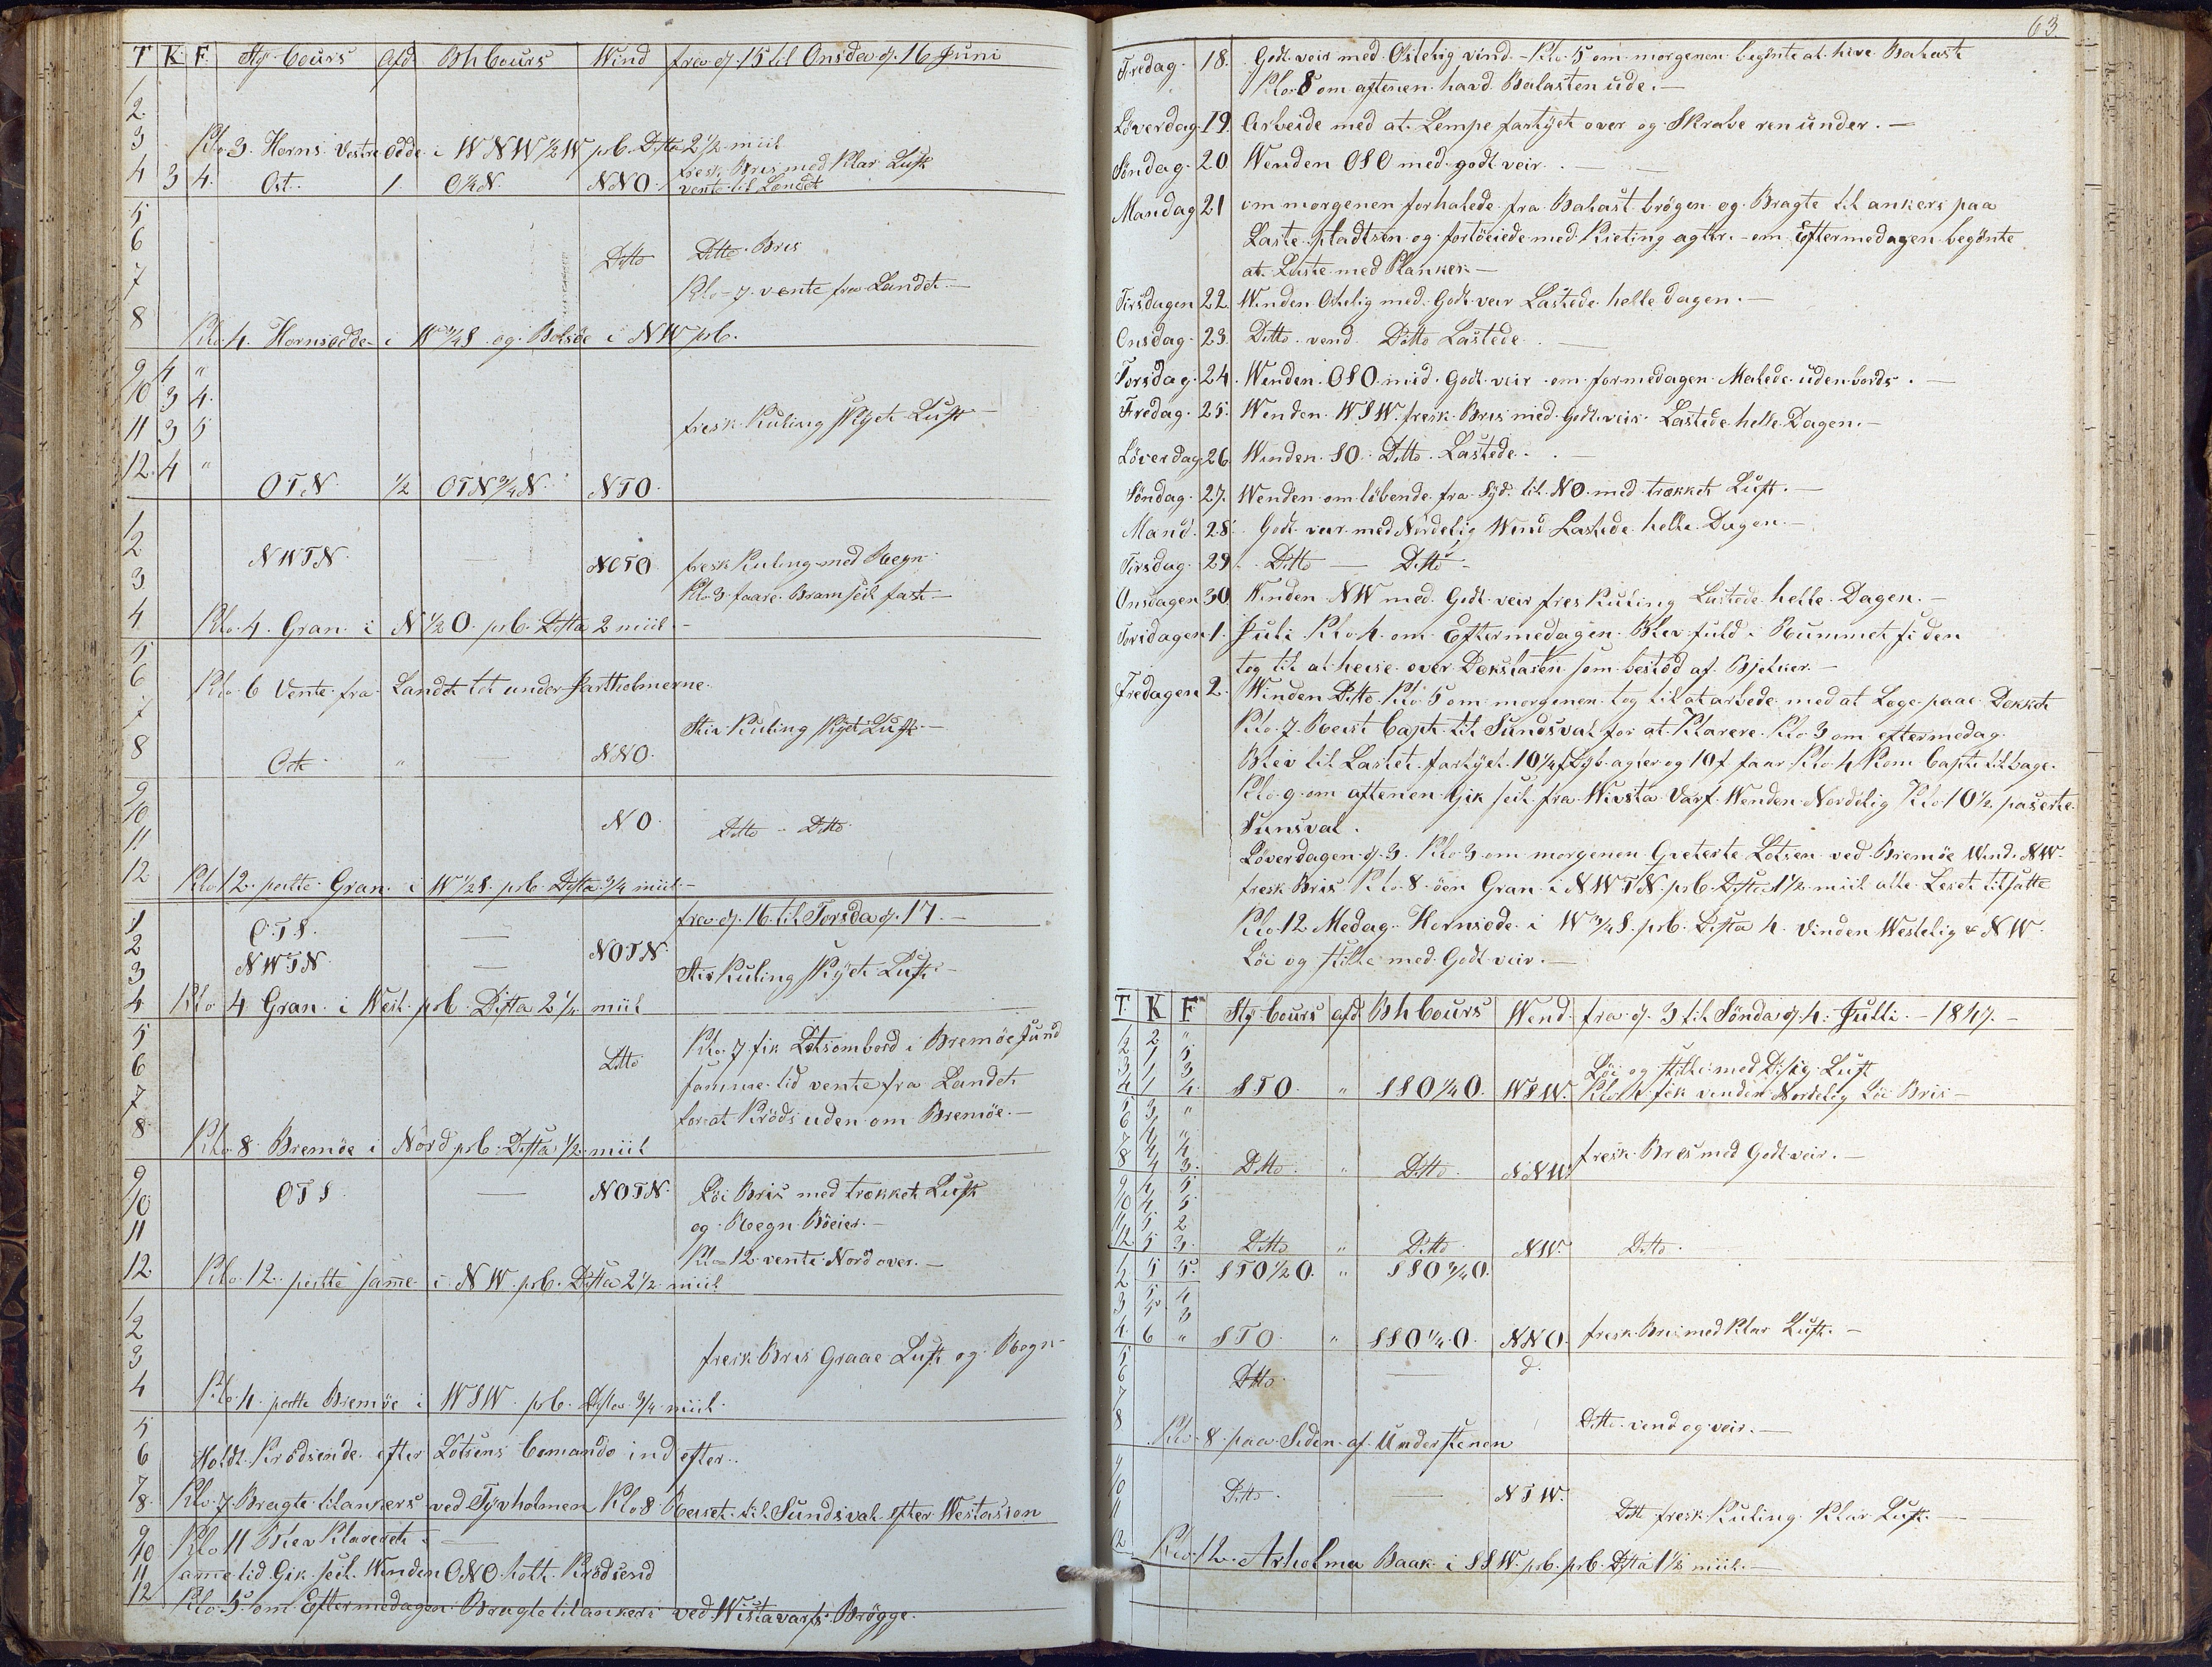 T K F Sty Cours Afd Bh Cours Wind fra d. 15 til Onsda d. 16 Juni
1
2
3 Klo 3 Horns Vestre Odde i WNW ½ W pr b. Dista 2 ½ miil
fresk Bris med Klar Luft
4 3 4. Ost. 1. O ¼ N. NNO. vente til Landet
5
6 Ditto Ditto Bris
7 Klo 7 vente fra Landet. —
8 Klo 4. Hornsodde i W ¾ S og Bolsöe i NW pr b.
9 4 "
10 3 4.
11 3 5 fresk Kuling Skyet Luft —
12. 4 " OTN. ½ OTN ¾ N. NTO.
1
2 NWTN. — NOTO. fresk Kuling med Regn
3 Klo 3 faare Bramseil fast —
4 Klo. 4. Gran i N ½ O. pr b. Dista 2 miil. —
5
6 Klo. 6 Vente fra Landet tet under Jartholmerne.
7 Stiv Kuling Skyet Luft. —
8 Ost " — NNO.
9
10 NO. Ditto - Ditto.
11
12 Klo 12. peilte Gran. i W ½ S. pr b. Dista ¾ miil. —
1 OTS. — fra d. 16. til Torsda d. 17. —
2 NWTN. — NOTN.
3 Stiv Kuling Skyet Luft. —
4 Klo 4 Gran. i West. pr b. Dista 2 ¼ miil
5 Klo. 7 fik Lots ombord i Bremöe Sund
6 Ditto samme tid vente fra Landet
7 for at Kröds uden om Bremöe. —
8 Klo. 8 Bremöe i Nord pr b. Dista ½ miil
9
10 OTS. — NOTN. Löi Bris med trækket Luft
11 og Regn Böeier. —
Klo 12 vente Nord over. —
12 Klo. 12. peilte same i NW. pr b. Dista 2 ½ miil
1
2
3 fresk Bris Graae Luft og Regn —
4 Klo. 4. peilte Bremöe i WSW. pr b. Dista ¾ miil.
5
6 Holdt Krödsende efter Lotsens Comando ind efter.
7
8. Klo. 7. Bragte til ankers ved Tyvholmen Klo 8 Reiset til Sundsval efter Westasion
9
10 Klo 11 Blev Klareret
11 same tid Gik seil. Winden ONO. holt Krödsend
12 Klo. 5. om Eftermedagen Bragte til ankers ved Wistavarfs Brögge.
63
Fredag. 18. Godt veir med Ostelig vind. - Klo. 5 om morgenen begönte at hive Balast
Klo. 8 om aftenen havd Balasten ude. —
Löverdag 19. Arbeide med at Lempe fartyet over og Skrabe ren under. —
Söndag. 20 Wenden OSO med godt veir. —
Mandag 21 om morgenen forhalede fra Balast brögen og Bragte til ankers paa
Laste pladtsen og fortöeiede med Kieting agter. - om Eftermedagen begönte
at Laste med Planker —
Tirsdagen 22. Winden Ostelig med Godt veir Lastede helle dagen. —
Onsdag. 23. Ditto vend Ditto Lastede. —
Torsdag. 24. Winden OSO. mid. Godt veir om formedagen Malede udenbords. —
Fredag. 25. Wenden WSW. fresk Bris med Godt veir Lastede helle Dagen. —
Löverdag 26. Winden SO. Ditto. Lastede. —
Söndag. 27. Wenden om löbende fra Syd. til NO. med trækket Luft. —
Mand. 28. Godt veir med Nordelig Wind Lastede helle Dagen. —
Tirsdag. 29. Ditto — Ditto —
Onsdagen 30 Winden NW med Godt veir fresk Kuling Lastede helle Dagen. —
Torsdagen 1. Juli Klo. 4. om Eftermedagen Blev fuld i Rummet siden
tog til at heise over Dekslasten som bestod af Bjelker. —
Fredagen 2. Winden Ditto. Klo. 5 om morgenen tog til at arbede med at Lage paae Dekket
Klo. 7. Reist Capt. til Sundsval for at Klarere. Klo 3 om eftermedag.
Blev til Lastet. fartyet. 10 ¼ f Dyb. agter og 10 f faar Klo 4 Kom Capt. tilbage.
Klo. 9 om aftenen Gik seil fra Wivsta Varf. Wenden Nordelig Klo 10 ½ paserte
Sunsval.
Löverdagen d. 3. Klo 3 om morgenen Qveterte Lotsen ved Bremöe Wind. NW.
fresk Bris. Klo. 8. öen Gran. i NWTN. pr b. Dista 1 ½ miil alle Leseil tilsatte
Klo. 12 Medag. Hornsode i W ¾ S. pr b. Dista 4. Vinden Westelig & NW.
Löi og stille med Godt veir. —
T. K F Sty Cours afd Bh Cours Wend. fra d. 3 til Sönda d. 4. Julli. - 1847. -
1 2 "
2 1 5
3 1 3 Löi og stille med Disig Luft
4 1 4. STO. " SSO ¼ O. WSW. Klo 4 fik vinden Nordelig Löi Bris —
5 3 "
6 4 "
7 4 4
8 4 3. Ditto. " Ditto. NNW. fresk Bres med Godt veir. —
9 4 5
10 4 5
11 5 2
12 5 3. Ditto " Ditto NW. Ditto.
1 5 5. STO ½ O. " SSO ¾ O.
2 5 4
3 5 3
4. 6 " STO. " SSO ¼ O. NNO. fresk Bris med Klar Luft. —
5
6 Ditto — d.
7
8 Klo. 8 paa Siden af Understenen Ditto. vend og veir. —
9
10 Ditto. — NTW.
11 Ditt fresk Kuling Klar Luft. —
12 Klo. 12. Arholma Baak i SSW. pr b. pr b. Dista 1 ½ miil. —